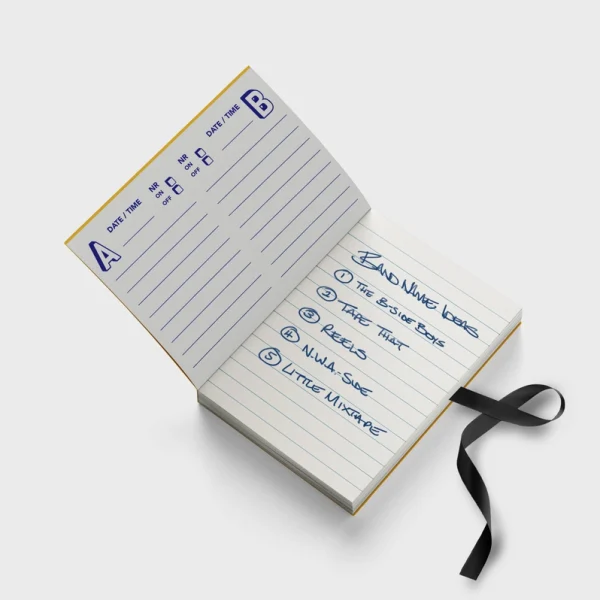 A
DATE / TIME
NR
ON
OFF
NR
ON
OFF
DATE / TIME
B
BAND NAME IDEAS
1 THE B-SIDE BOYS
2 TAPE THAT
3 REELS
4 N.W.A.-SIDE
5 LITTLE MIXTAPE